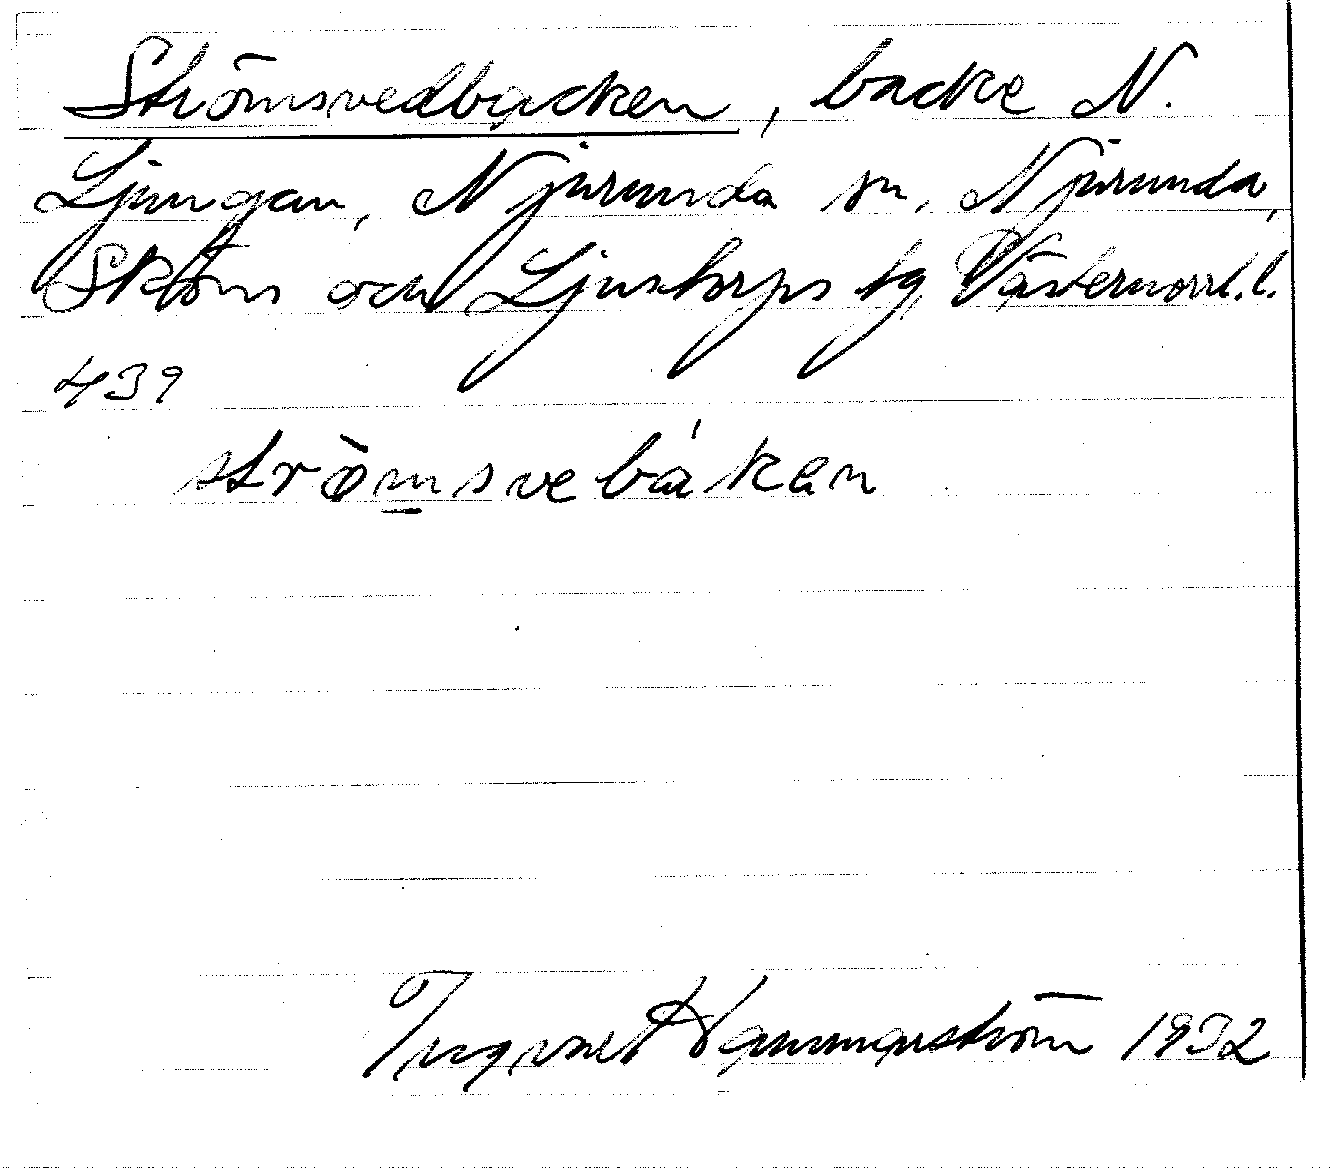 Strömsvedbacken, backe N.
Ljungan, Njurunda sn, Njurunda,
Sköns och Ljustorps tg Västernorrl. l.
439
strömsvebákan
Ingvar Hammarström 1932